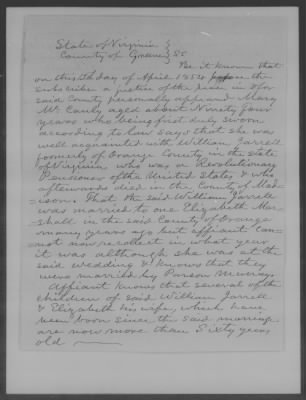 State of Virginia }
County of Greene } SS
Be it known that
on this day of April 1854 before the
subscriber a justice of the peace in & for
said County personally appeared Mary
McCauly aged about Ninety four
years who being first duly sworn
according to law says that she was
well acquainted with William Jarrell
formerly of Orange County in the State
of Virginia who was a Revolutionary
Pensioner of the United States & who
afterwards died in the County of Mad-
ison. That the said William Jarrell
was married to one Elizabeth
in the said County of Orange
many years ago but affiant can-
not now recollect in what year
it was although she was at the
said wedding & knows that they
were married by Parson
Affiant knows that several of the
children of said William Jarrell
& Elizabeth his wife, which have
been born since the said marriage
are now more than Sixty years
old